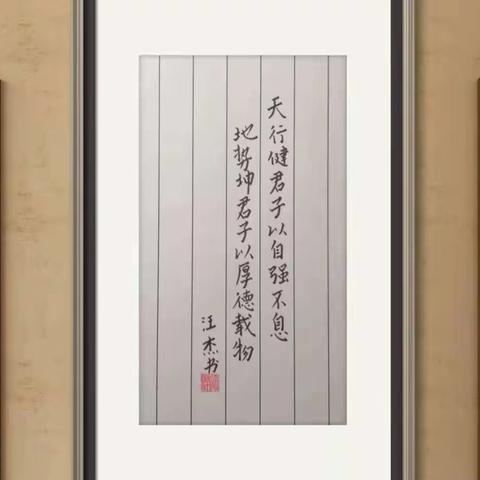 天行健君子以自强不息
地势坤君子以厚德载物
汪杰书